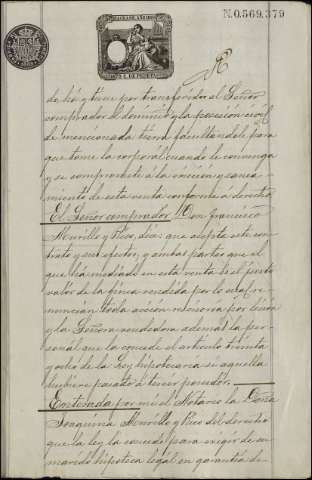 N.0.569.379
de hoy y tiene por transferidos al Señor
comprador el dominio y la posesion civil
de mencionada tierra facultandole para
que tome la corporal cuando le convenga
y se compromete á la eviccion y sanea-
miento de esta venta conforme á derecho
El Señor comprador Don Francisco
Murillo y Rico, dice: que acepta este con-
trato y sus efectos, y ambas partes que el
que ha mediado en esta venta es el justo
valor de la finca vendida por lo cual re-
nuncian toda accion rescisoria por lesion
y la Señora vendedora además la per-
sonal que la concede el artículo treinta
y ocho de la Ley hipotecaria si aquella
hubiere pasado á tercer poseedor.
Enterada por mi el Notario la Doña
Joaquina Murillo y Rico del derecho
que la ley la concede para exigir de su
marido hipoteca legal en garantía de